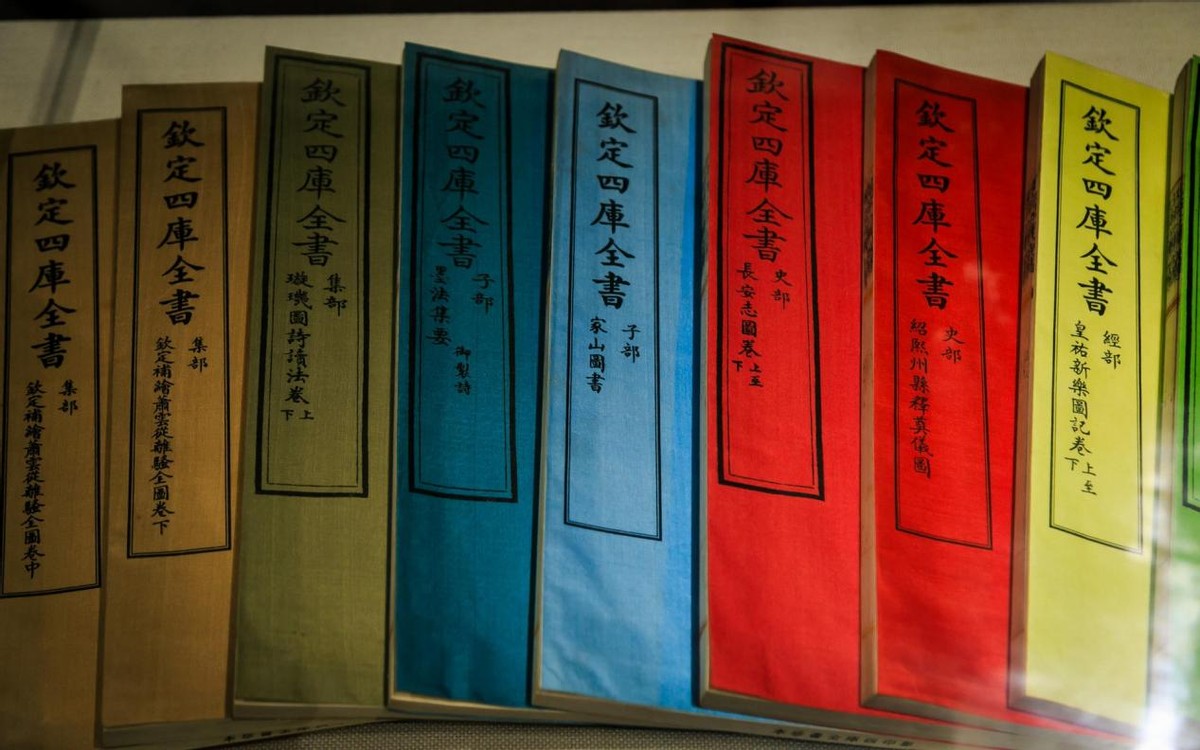 欽定四庫全書
集部
欽定補繪蕭雲從離騷全圖卷中
欽定四庫全書
集部
欽定補繪蕭雲從離騷全圖卷下
欽定四庫全書
集部
璇璣圖詩讀法卷上
下
欽定四庫全書
子部
墨法集要
御製詩
欽定四庫全書
子部
家山圖書
欽定四庫全書
史部
長安志圖卷上至
下
欽定四庫全書
史部
紹熙州縣釋奠儀圖
欽定四庫全書
經部
皇祐新樂圖記卷上至
下